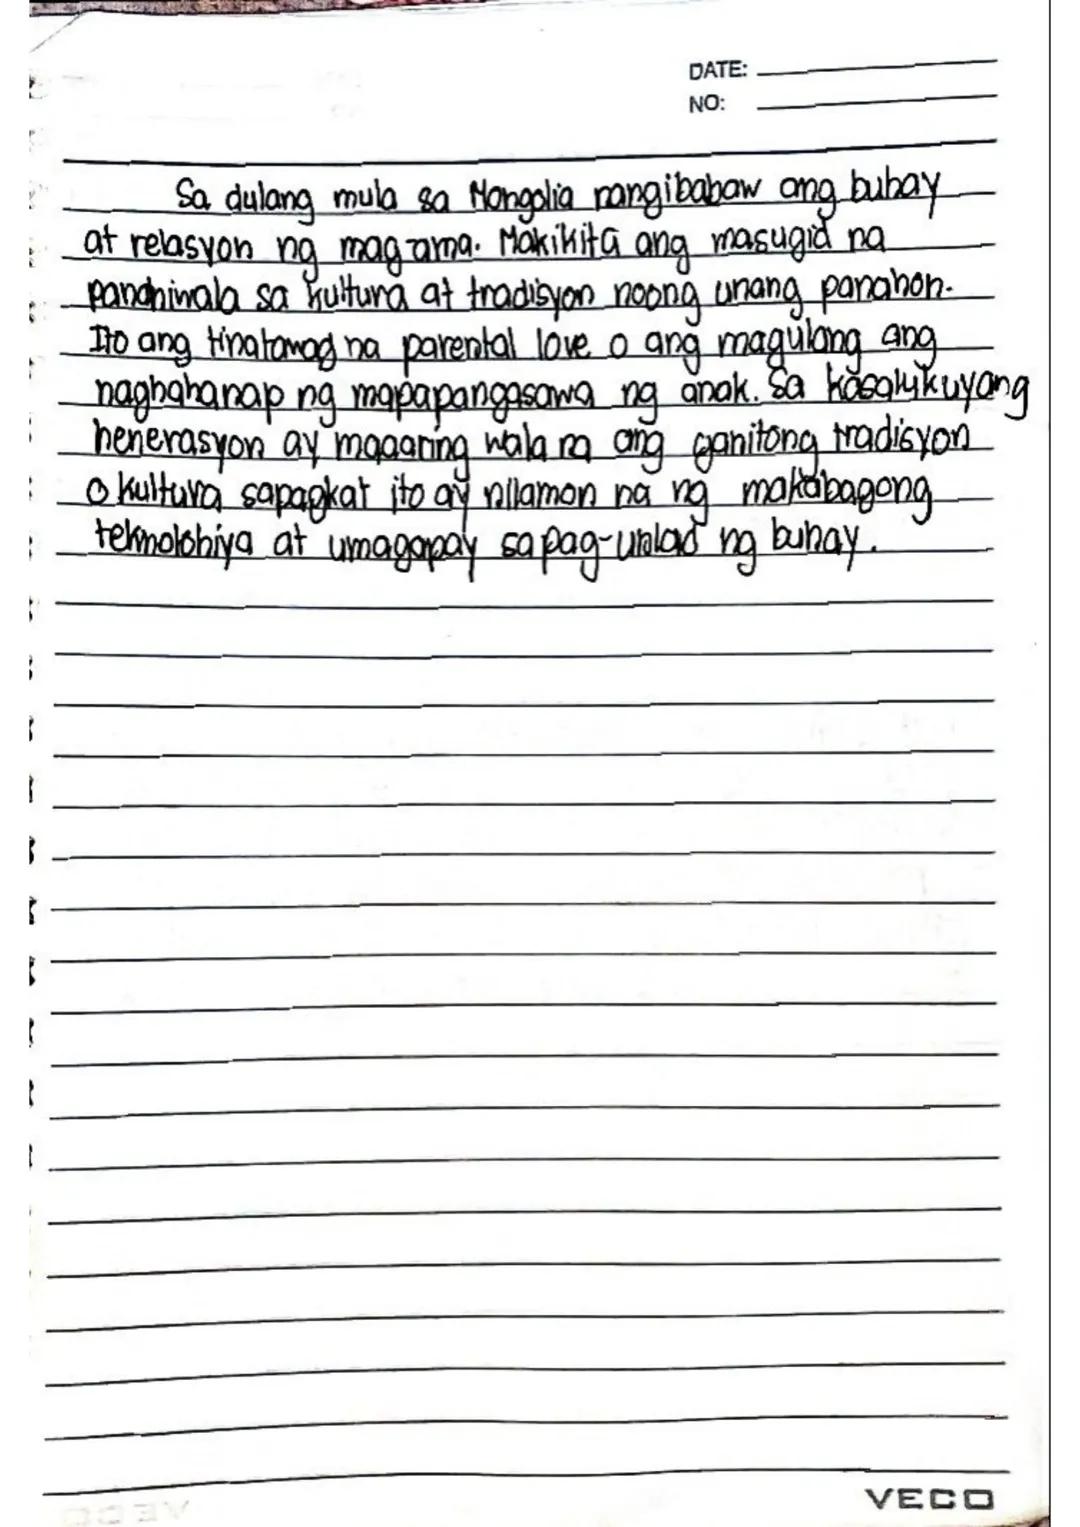 DATE:
NO:
Sa dulang mula sa Mongolia nangibabaw ang buhay
at relasyon ng mag-ama. Makikita ang masugid na
paniniwala sa kultura at tradisyon noong unang panahon.
Ito ang tinatawag na parental love o ang magulang ang
naghahanap ng mapapangasawa ng anak. Sa kasalukuyang
henerasyon ay maaaring wala na ang ganitong tradisyon
o kultura sapagkat ito ay nilamon na ng makabagong
teknolohiya at umagapay sa pag-unlad ng buhay.
VECO